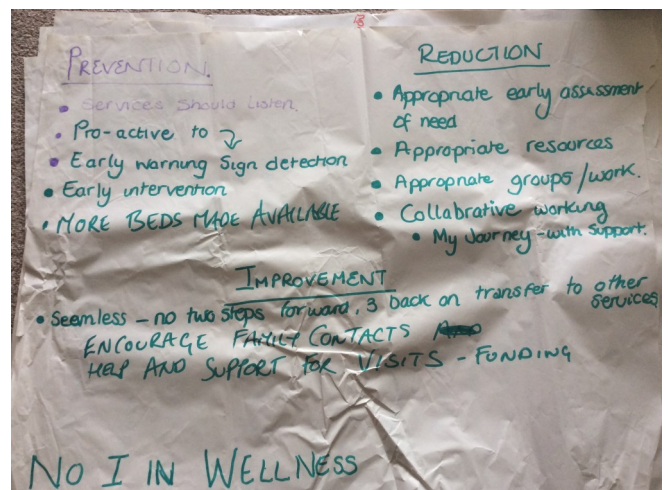 PREVENTION.
• Services Should Listen.
• Pro-active to
• Early warning Sign detection
• Early intervention
• MORE BEDS MADE AVAILABLE
REDUCTION
• Appropriate early assessment
of need
• Appropriate resources
• Appropriate groups/work.
• Collabrative working
• My Journey - with Support.
IMPROVEMENT
• Seamless – no two steps forward, 3 back on transfer to other
services
ENCOURAGE FAMILY CONTACTS
HELP AND SUPPORT FOR VISITS - FUNDING
NO I IN WELLNESS